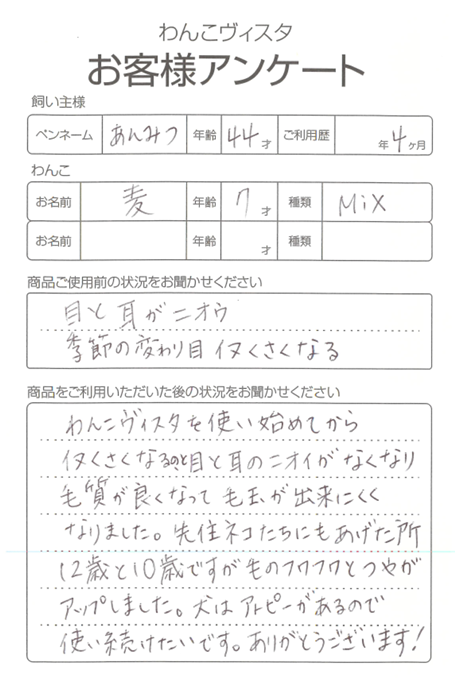 わんこヴィスタ
お客様アンケート
飼い主様
ペンネーム あんみつ 年齢 44才 ご利用歴 年4ヶ月
わんこ
お名前 麦 年齢 7才 種類 MiX
お名前 年齢 才 種類
商品ご使用前の状況をお聞かせください
目と耳がニオウ
季節の変わり目イヌくさくなる
商品をご利用いただいた後の状況をお聞かせください
わんこヴィスタを使い始めてから
イヌくさくなるのと目と耳のニオイがなくなり
毛質が良くなって毛玉が出来にくく
なりました。先住ネコたちにもあげた所
12歳と10歳ですが毛のフワフワとつやが
アップしました。犬はアトピーがあるので
使い続けたいです。ありがとうございます!